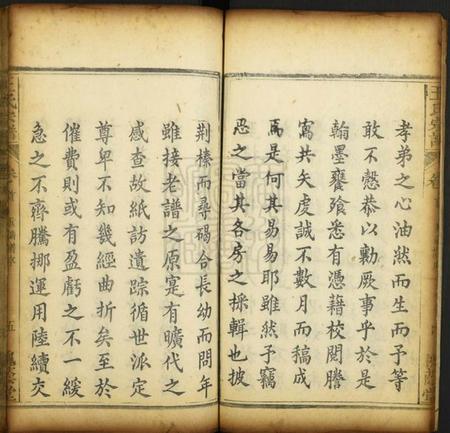 孝弟之心油然而生而予等
敢不慤恭以勷厥事乎於是
翰墨饔飧悉有憑藉校閱謄
寫共矢虔誠不數月而稿成
焉是何其易易耶雖然予竊
思之當其各房之採輯也披
荆榛而尋碣合長幼而問年
雖接老譜之原寔有曠代之
感查故紙訪遺踪循世派定
尊卑不知幾經曲折矣至於
催費則或有盈虧之不一緩
急之不齊騰挪運用陸續交
五